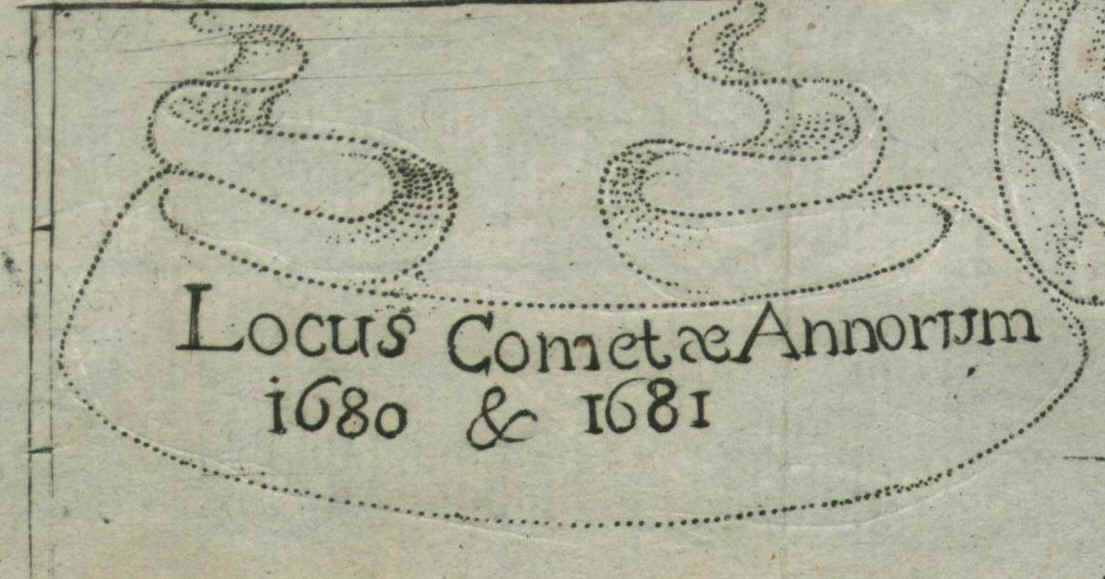 Locus Cometæ Annorum
1680 & 1681